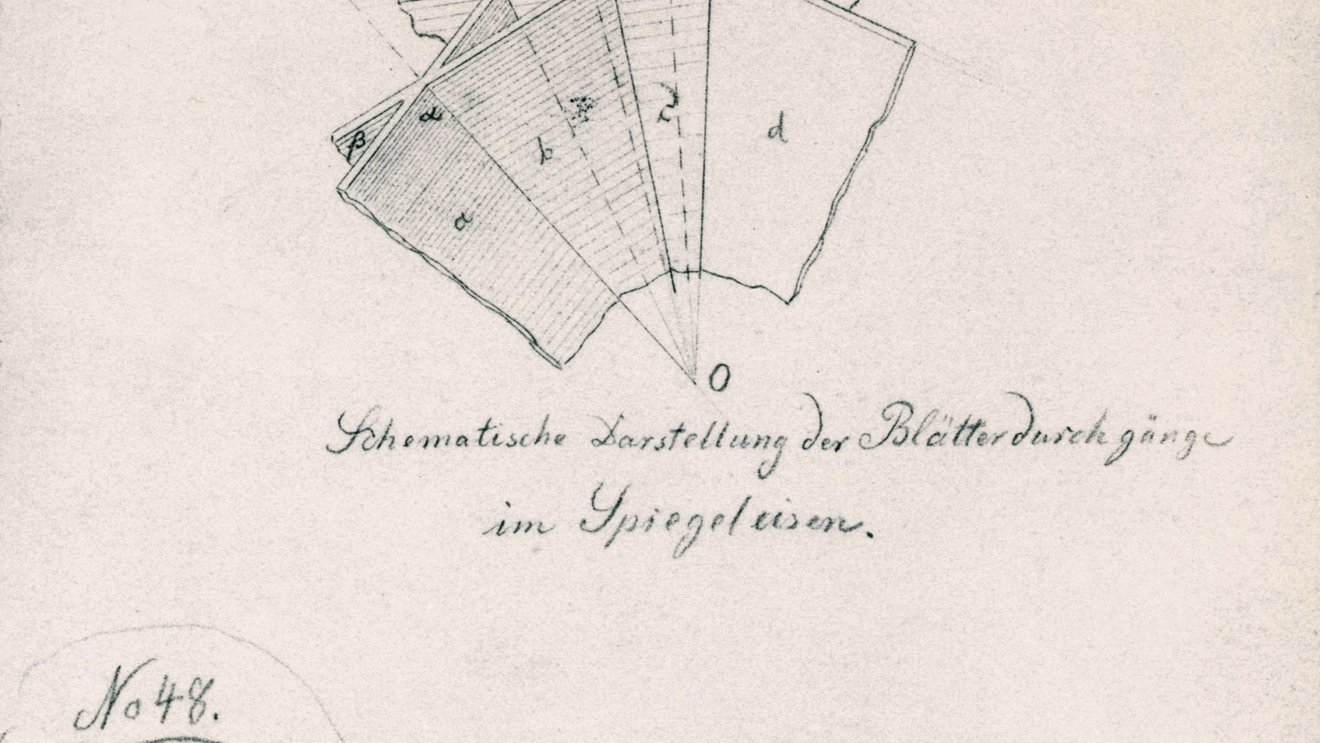 α
β
b
d
a
O
Schematische Darstellung der Blätterdurchgänge
im Spiegeleisen.
No 48.